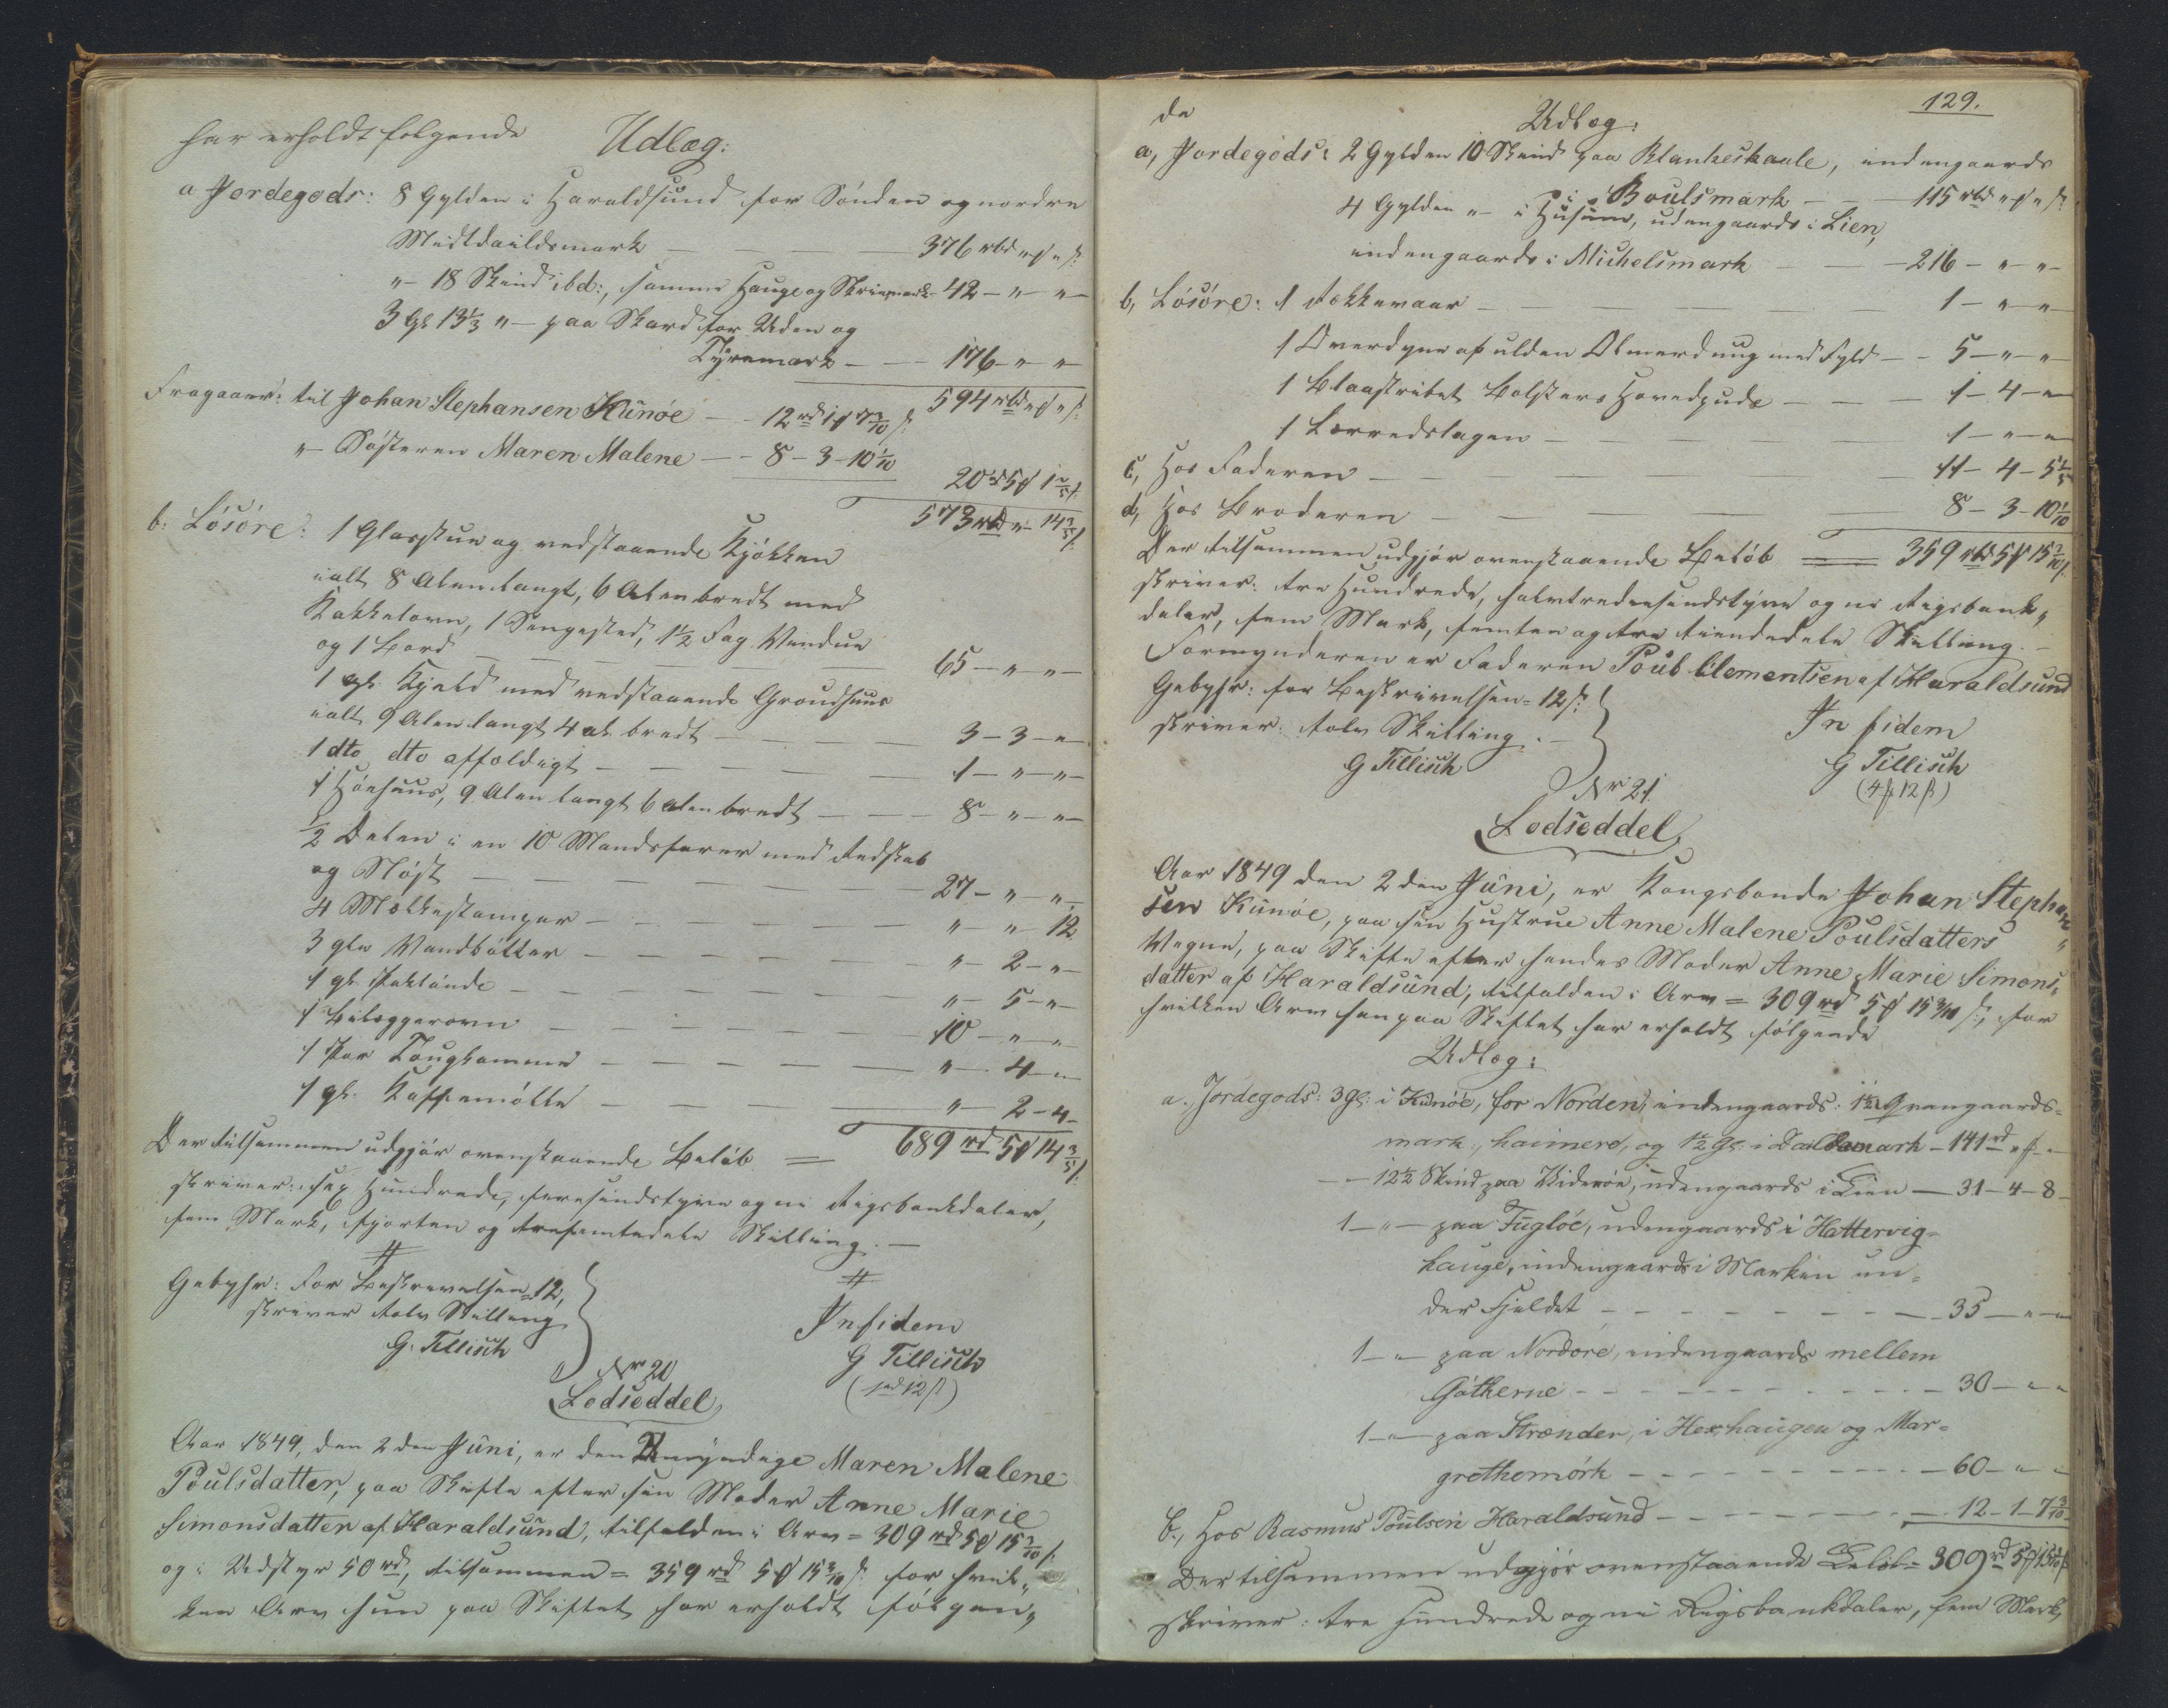 har erholdt følgende Udlæg:
a Jordegods: 8 Gylden i Haraldsund for Sønden og nordre
Midtdaildsmark — — — 376 rbd " ß " s:
"— 18 Skind ibd:, samme Hauge og Skriv mark 42 — " — "
3 Gl 13⅓ "— paa Skard for Uden og
Tyremark — — 176 — " — "
594 rbd " ß " s:
Fragaaer: til Johan Stephansen Kunøe — 12 rd 1 ß 7 3/10 s:
"— Søsteren Maren Malene — - 8 - 3 - 10 1/10
20 rd 5 ß 1 2/5 s:
573 rbd " - 14 3/5 s:
b: Løsøre: 1 Glasstue og vedstaaende Kjøkken
ialt 8 Alen langt, 6 Alen bredt med
Kakkelovn, 1 Sengested, 1½ Fag Vendue
og 1 Bord — — — 65 — " — "
1 gl. Hjald med vedstaaende Groudhuus
ialt 9 Alen langt 4 al. bredt — — 3 - 3 - "
1 dto dto affældigt — — — 1 — " — "
1 Høehuus, 9 Alen langt 6 Alen bredt — — 8 — " — "
½ Delen i en 10 Mandsfarer med Redskab
og Nøst — — — 27 — " — "
4 Melkestamper — — — " — " 12
3 gle Vandbøtter — — — " — 2 — "
1 gl. Saltünde — — — " — 5 — "
1 Bilæggerovn — — — 10 — " — "
1 Par Tougkamme — — — " — 4 — "
1 gl. Kaffemølle — — — " — 2 - 4 -
Der tilsammen udgjør ovenstaaende Beløb = 689 rd 5 ß 14 3/5 s:
skriver: sex Hundrede, firesindstyve og ni Rigsbankdaler,
fem Mark, fjorten og trefemtedele Skilling. —
Gebyhr: For Beskrivelsen = 12,
skriver tolv Skilling
G. Tillisch
In fidem
G Tillisch
(1 rd 12 ß)
Nr 20
Lodseddel,
Aar 1849, den 2den Juni, er den Umyndige Maren Malene
Poulsdatter, paa Skifte efter sin Moder Anne Marie
Simonsdatter af Haraldsund, tilfalden i Arv = 309 rd 5 ß 15 3/10 s:
og i Udstyr 50 rd, tilsammen = 359 rd 5 ß 15 3/10 s: for hvil„
ken Arv hun paa Skiftet har erholdt følgen„
129.
de Udlæg:
a, Jordegods: 2 Gylden 10 Skind paa Blankeskaale, indengaards
i Boulsmark — — 115 rbd " ß " s:
4 Gylden "— i Husum, udengaards i Lien,
indengaards i Michelsmark — — 216 — " — "
b, Løsøre: 1 Dækkevaar — — — 1 — " — "
1 Overdyne af ulden Olmerdung med Fyld — - 5 — " — "
1 Blaastribet Bolsters Hovedpude — — — 1 - 4 - "
1 Lærredslagen — — — 1 — " — "
c, Hos Faderen — — — 11 - 4 - 5 1/5
d, Hos Broderen — — — 8 - 3 - 10 1/10
Der tilsammen udgjør ovenstaaende Beløb = 359 rbd 5 ß 15 3/10 s:
skriver: tre Hundrede, halvtrediesindstyve og ni Rigsbank„
daler, fem Mark, femten og tre tiendedele Skilling. —
Formynderen er Faderen Poul Clementsen af Haraldsund
Gebyhr: for Beskrivelsen = 12 s:
skriver: tolv Skilling. —
G Tillisch
In fidem
G Tillisch
(4 ß 12 ß)
Nr 21
Lodseddel,
Aar 1849 den 2den Juni, er Kongsbonde Johan Stephan„
sen Kunøe, paa sin Hustrue Anne Malene Poulsdatters
Vegne, paa Skifte efter hendes Moder Anne Marie Simons„
datter af Haraldsund, tilfalden i Arv = 309 rd 5 ß 15 3/10 s:, for
hvilken Arv han paa Skiftet har erholdt følgende
Udlæg:
a. Jordegods: 3 Gl: i Kunøe, for Norden, indengaards: 1½ Gl
mark, haimere, og 1½ Gl. i Daildamark — 141 rd " ß "
— 12½ Skind paa Viderøe, udengaards i Lien — 31 - 4 - 8 -
1 — " — paa Fugløe, udengaards i Hattervig=
hauge, indengaards i Marken un=
der Fjeldet — — — 35 — " — "
1 — " — paa Nordøre, indengaards mellem
Gøtherne — — — 30 — " — "
1 — " — paa Strænder, i Hexhaugen og Mar=
grethemørk — — — 60 — " — "
b., Hos Rasmus Poulsen Haraldsund — — — 12 - 1 - 7 3/10
Der tilsammen udgjør ovenstaaende Beløb = 309 rd 5 ß 15 3/10 s
skriver: tre Hundrede og ni Rigsbankdaler, fem Mark,